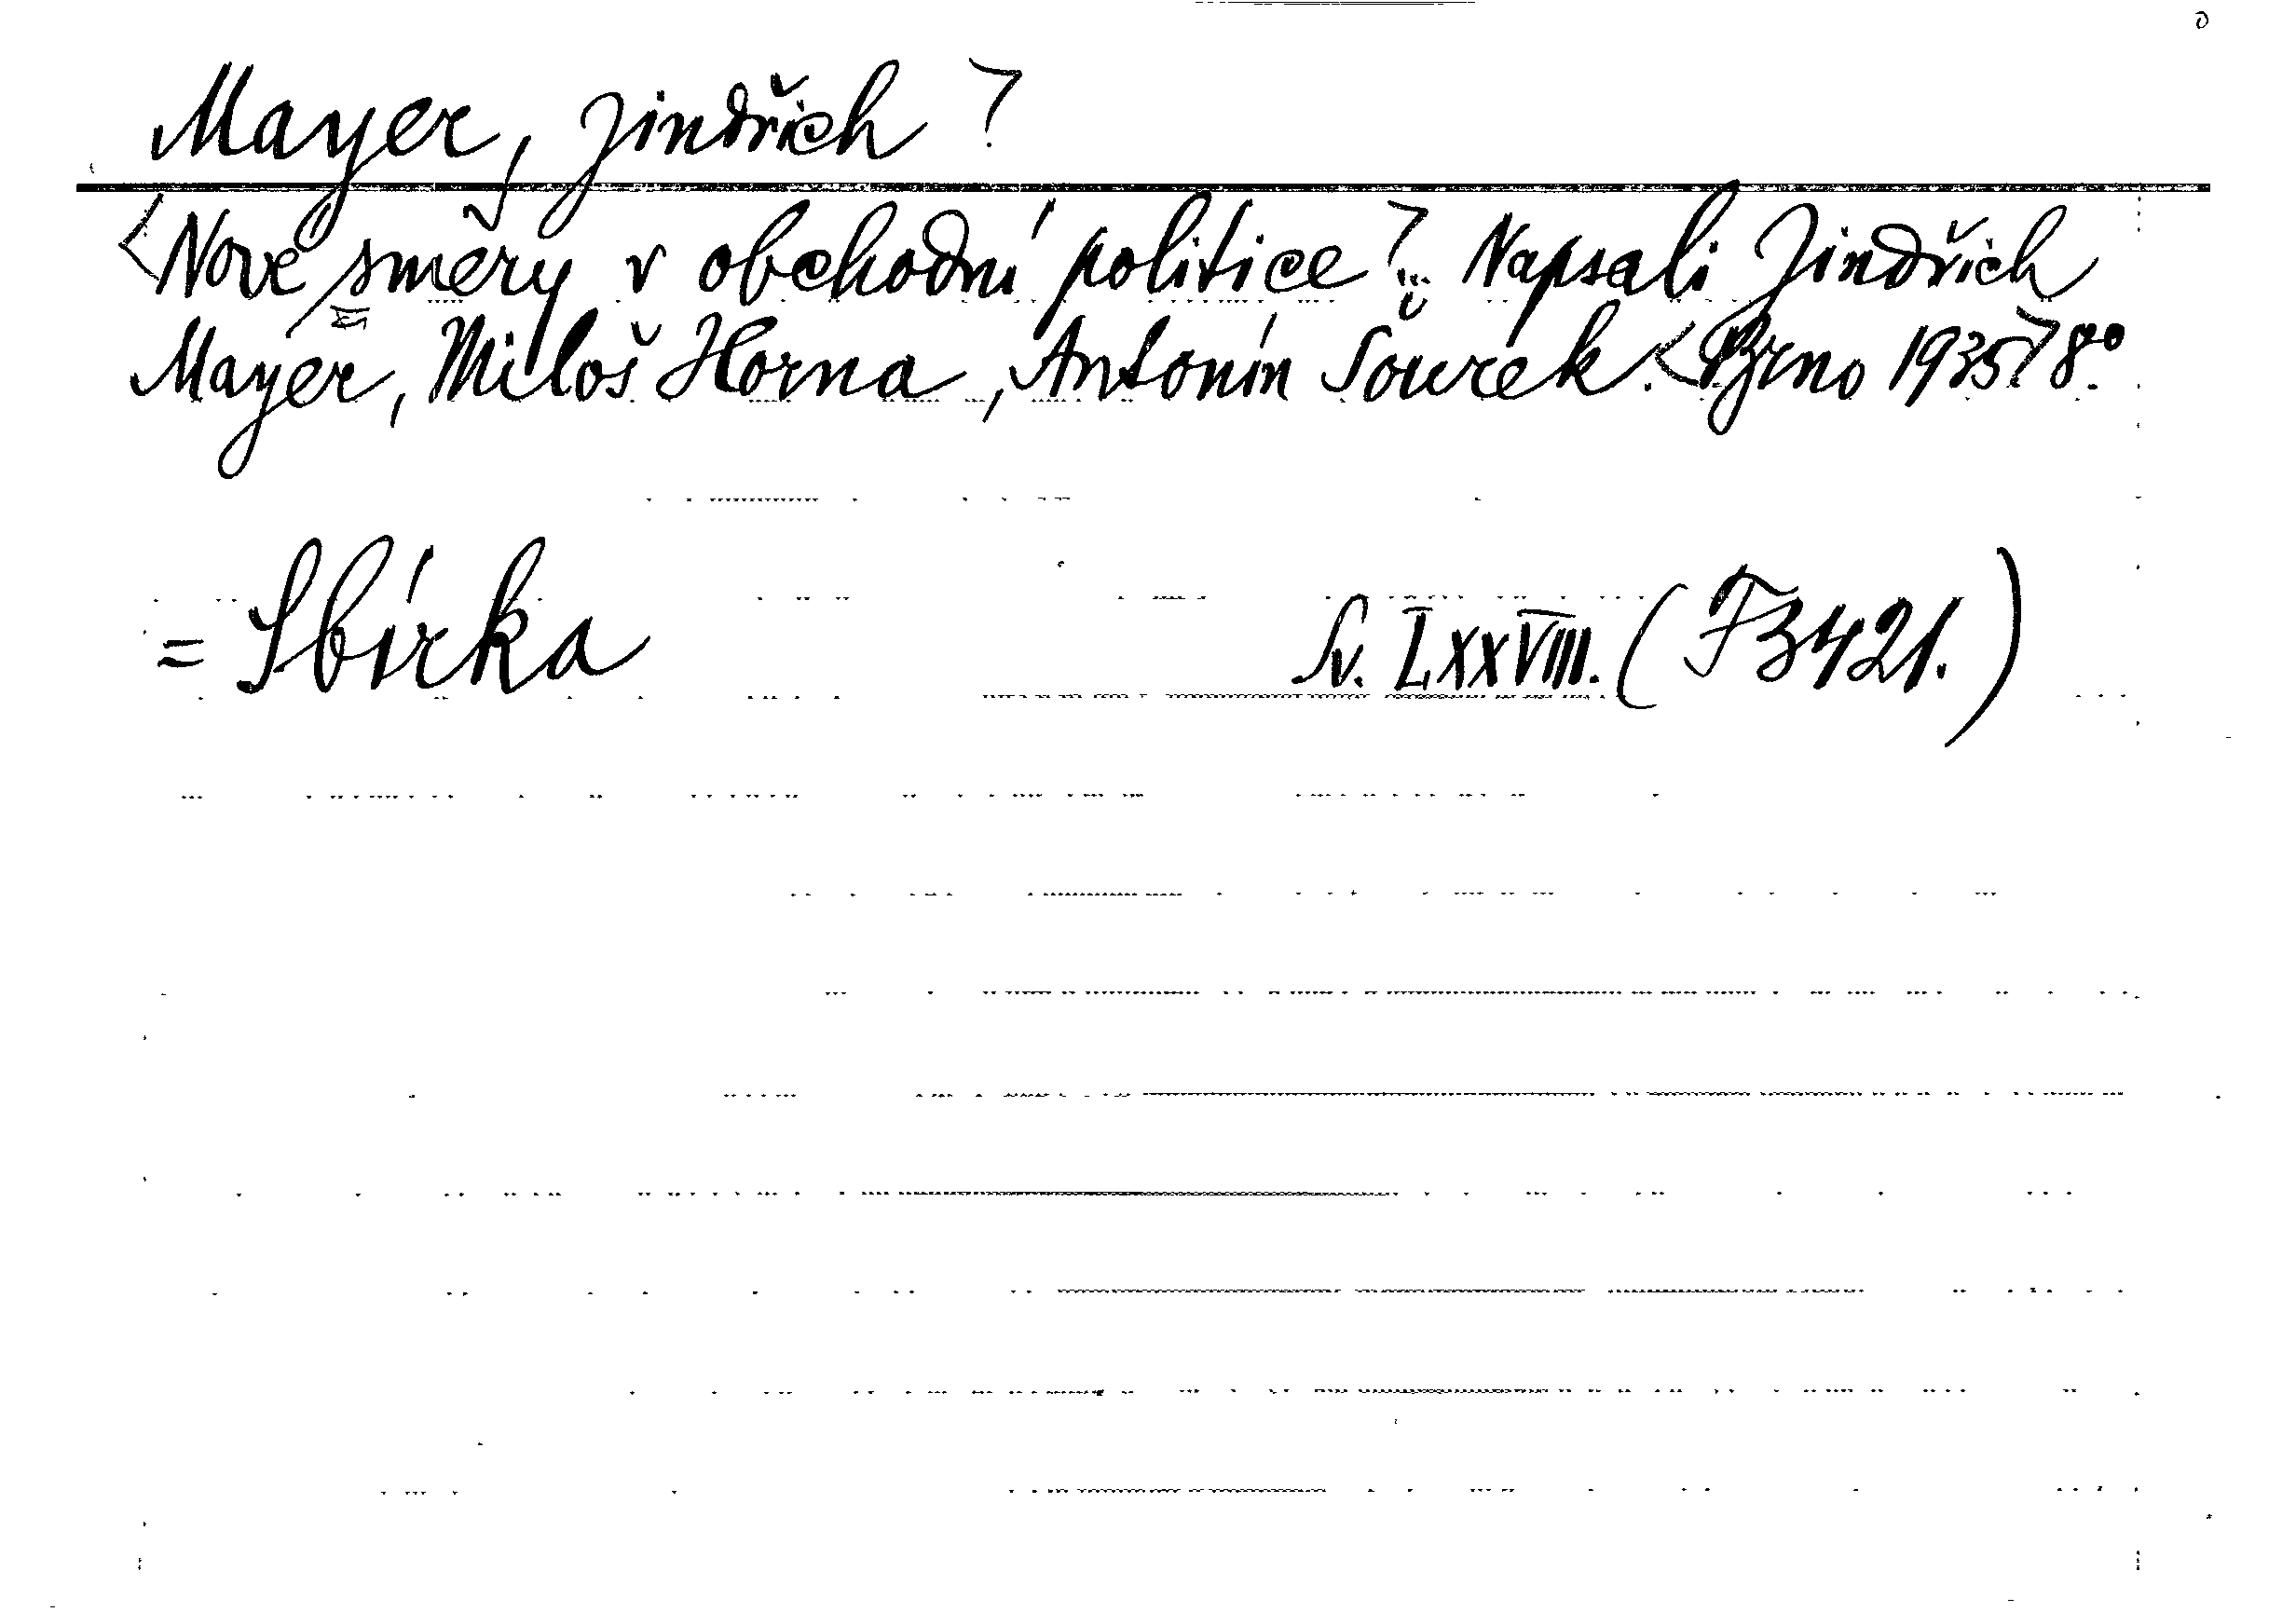 Mayer, Jindřich ?
<Nové směry v obchodní politice?. Napsali Jindřich
Mayer, Miloš Horna, Antonín Sourek. <Brno 1935> 8°.
= Sbírka Sv. LXXVIII. (F3421.)